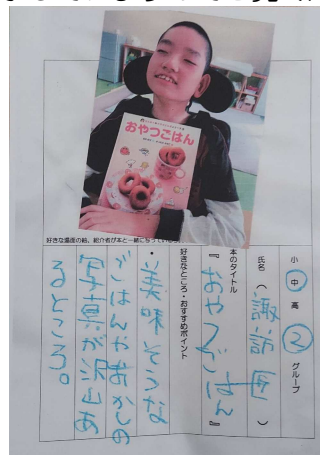 おやつごはん
好きな場面の絵、紹介者が本と一緒になっている
小 中 高 ② グループ
氏名（諏訪 ）
本のタイトル
『おやつごはん』
好きなところ・おすすめポイント
・美味そうな
ごはんやおかしの
写真が沢山あ
るところ。